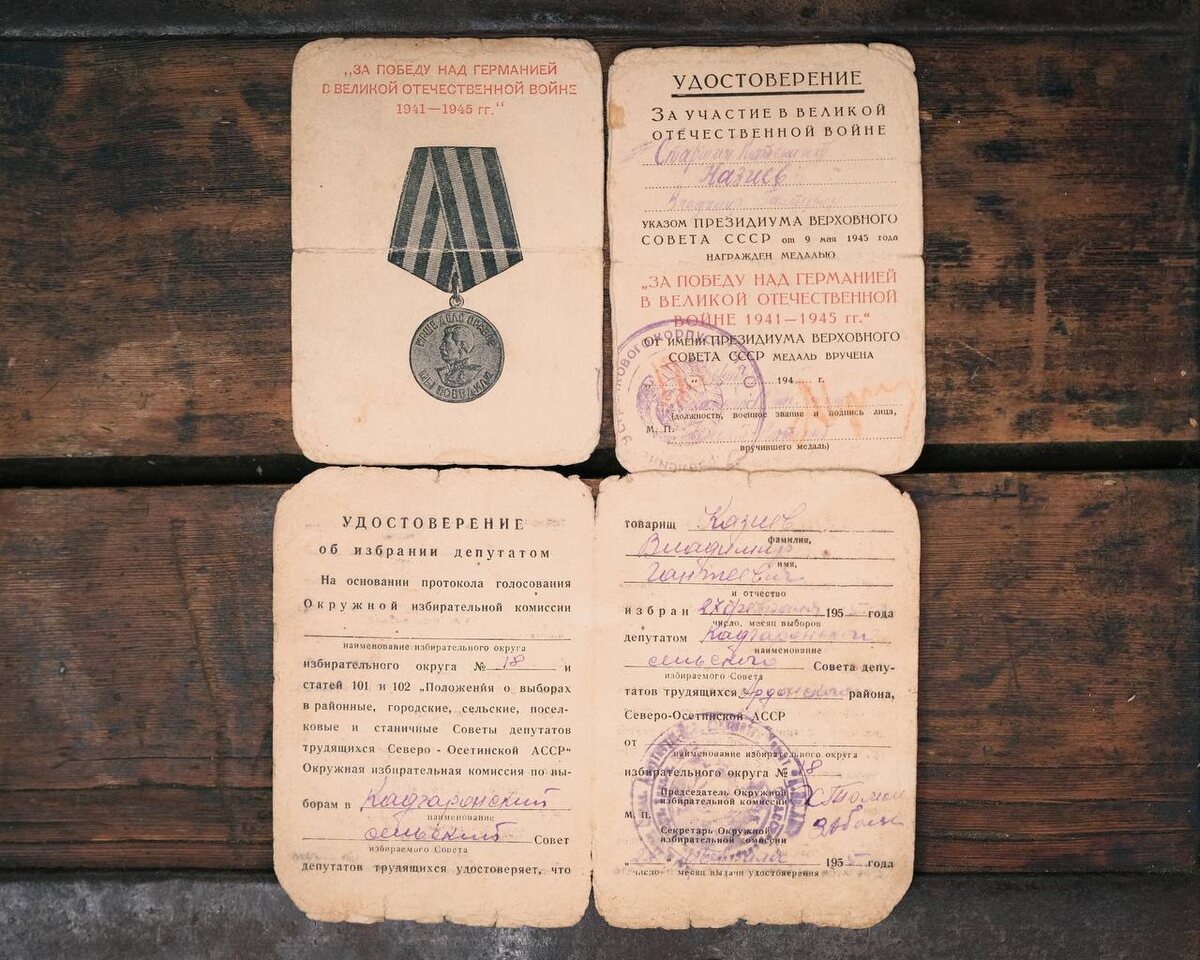 „ЗА ПОБЕДУ НАД ГЕРМАНИЕЙ
В ВЕЛИКОЙ ОТЕЧЕСТВЕННОЙ ВОЙНЕ
1941—1945 гг.“
НАШЕ ДЕЛО ПРАВОЕ
МЫ ПОБЕДИЛИ
УДОСТОВЕРЕНИЕ
ЗА УЧАСТИЕ В ВЕЛИКОЙ
ОТЕЧЕСТВЕННОЙ ВОЙНЕ
Казиев
УКАЗОМ ПРЕЗИДИУМА ВЕРХОВНОГО
СОВЕТА СССР от 9 мая 1945 года
НАГРАЖДЕН МЕДАЛЬЮ
„ЗА ПОБЕДУ НАД ГЕРМАНИЕЙ
В ВЕЛИКОЙ ОТЕЧЕСТВЕННОЙ
ВОЙНЕ 1941—1945 гг.“
ОТ ИМЕНИ ПРЕЗИДИУМА ВЕРХОВНОГО
СОВЕТА СССР МЕДАЛЬ ВРУЧЕНА
194 г.
(должность, военное звание и подпись лица,
М. П.
вручившего медаль)
УДОСТОВЕРЕНИЕ
об избрании депутатом
На основании протокола голосования
Окружной избирательной комиссии
наименование избирательного округа
избирательного округа № 18 и
статей 101 и 102 „Положения о выборах
в районные, городские, сельские, посел-
ковые и станичные Советы депутатов
трудящихся Северо-Осетинской АССР“
Окружная избирательная комиссия по вы-
борам в Кадгаронский
наименование
сельский Совет
избираемого Совета
депутатов трудящихся удостоверяет, что
товарищ Казиев
фамилия,
Владимир
имя,
и отчество
избран 27 февраля 1955 года
число, месяц выборов
депутатом Кадгаронского
наименование
сельского Совета депу-
избираемого Совета
татов трудящихся Ардонского района,
Северо-Осетинской АССР
от
наименование избирательного округа
избирательного округа № 18
Председатель Окружной
избирательной комиссии
М. П.
Секретарь Окружной
избирательной комиссии
февраля 1955 года
число месяц выдачи удостоверения